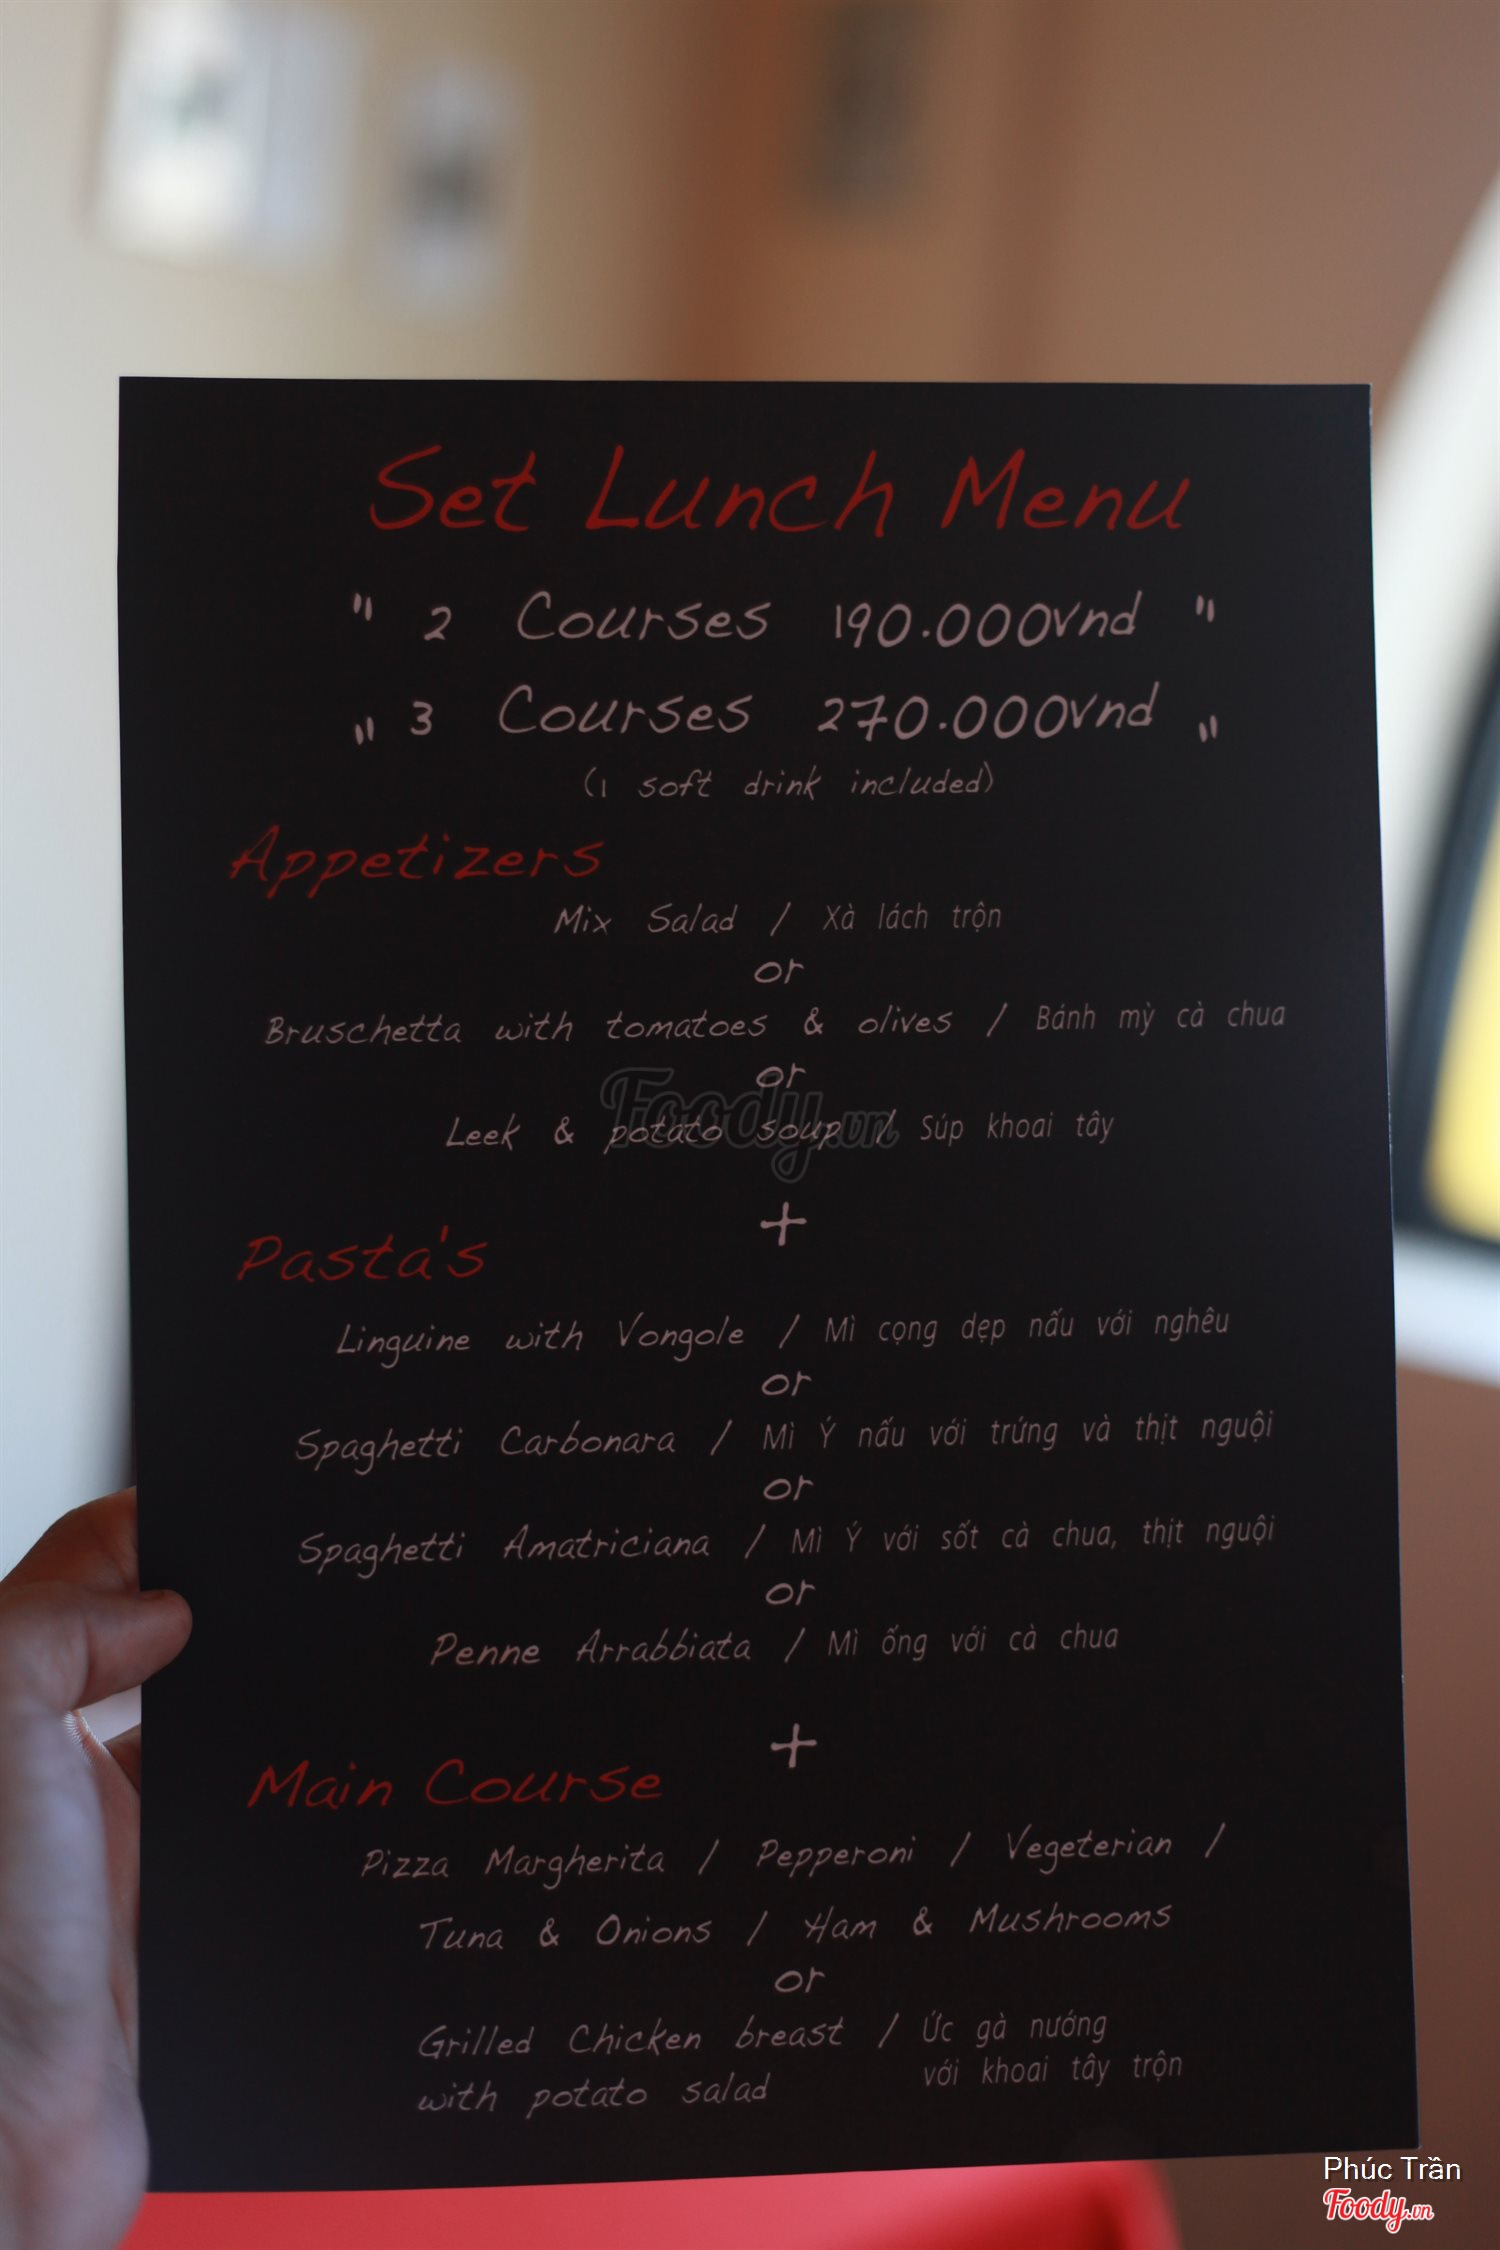 Set Lunch Menu
" 2 Courses 190.000vnd "
" 3 Courses 270.000vnd "
(1 soft drink included)
Appetizers
Mix Salad / Xà lách trộn
or
Bruschetta with tomatoes & olives / Bánh mỳ cà chua
or
Foody.vn
Leek & potato soup / Súp khoai tây
+
Pasta's
Linguine with Vongole / Mì cọng dẹp nấu với nghêu
or
Spaghetti Carbonara / Mì Ý nấu với trứng và thịt nguội
or
Spaghetti Amatriciana / Mì Ý với sốt cà chua, thịt nguội
or
Penne Arrabbiata / Mì ống với cà chua
+
Main Course
Pizza Margherita / Pepperoni / Vegeterian /
Tuna & Onions / Ham & Mushrooms
or
Grilled Chicken breast / Ức gà nướng
with potato salad với khoai tây trộn
Phúc Trần
Foody.vn